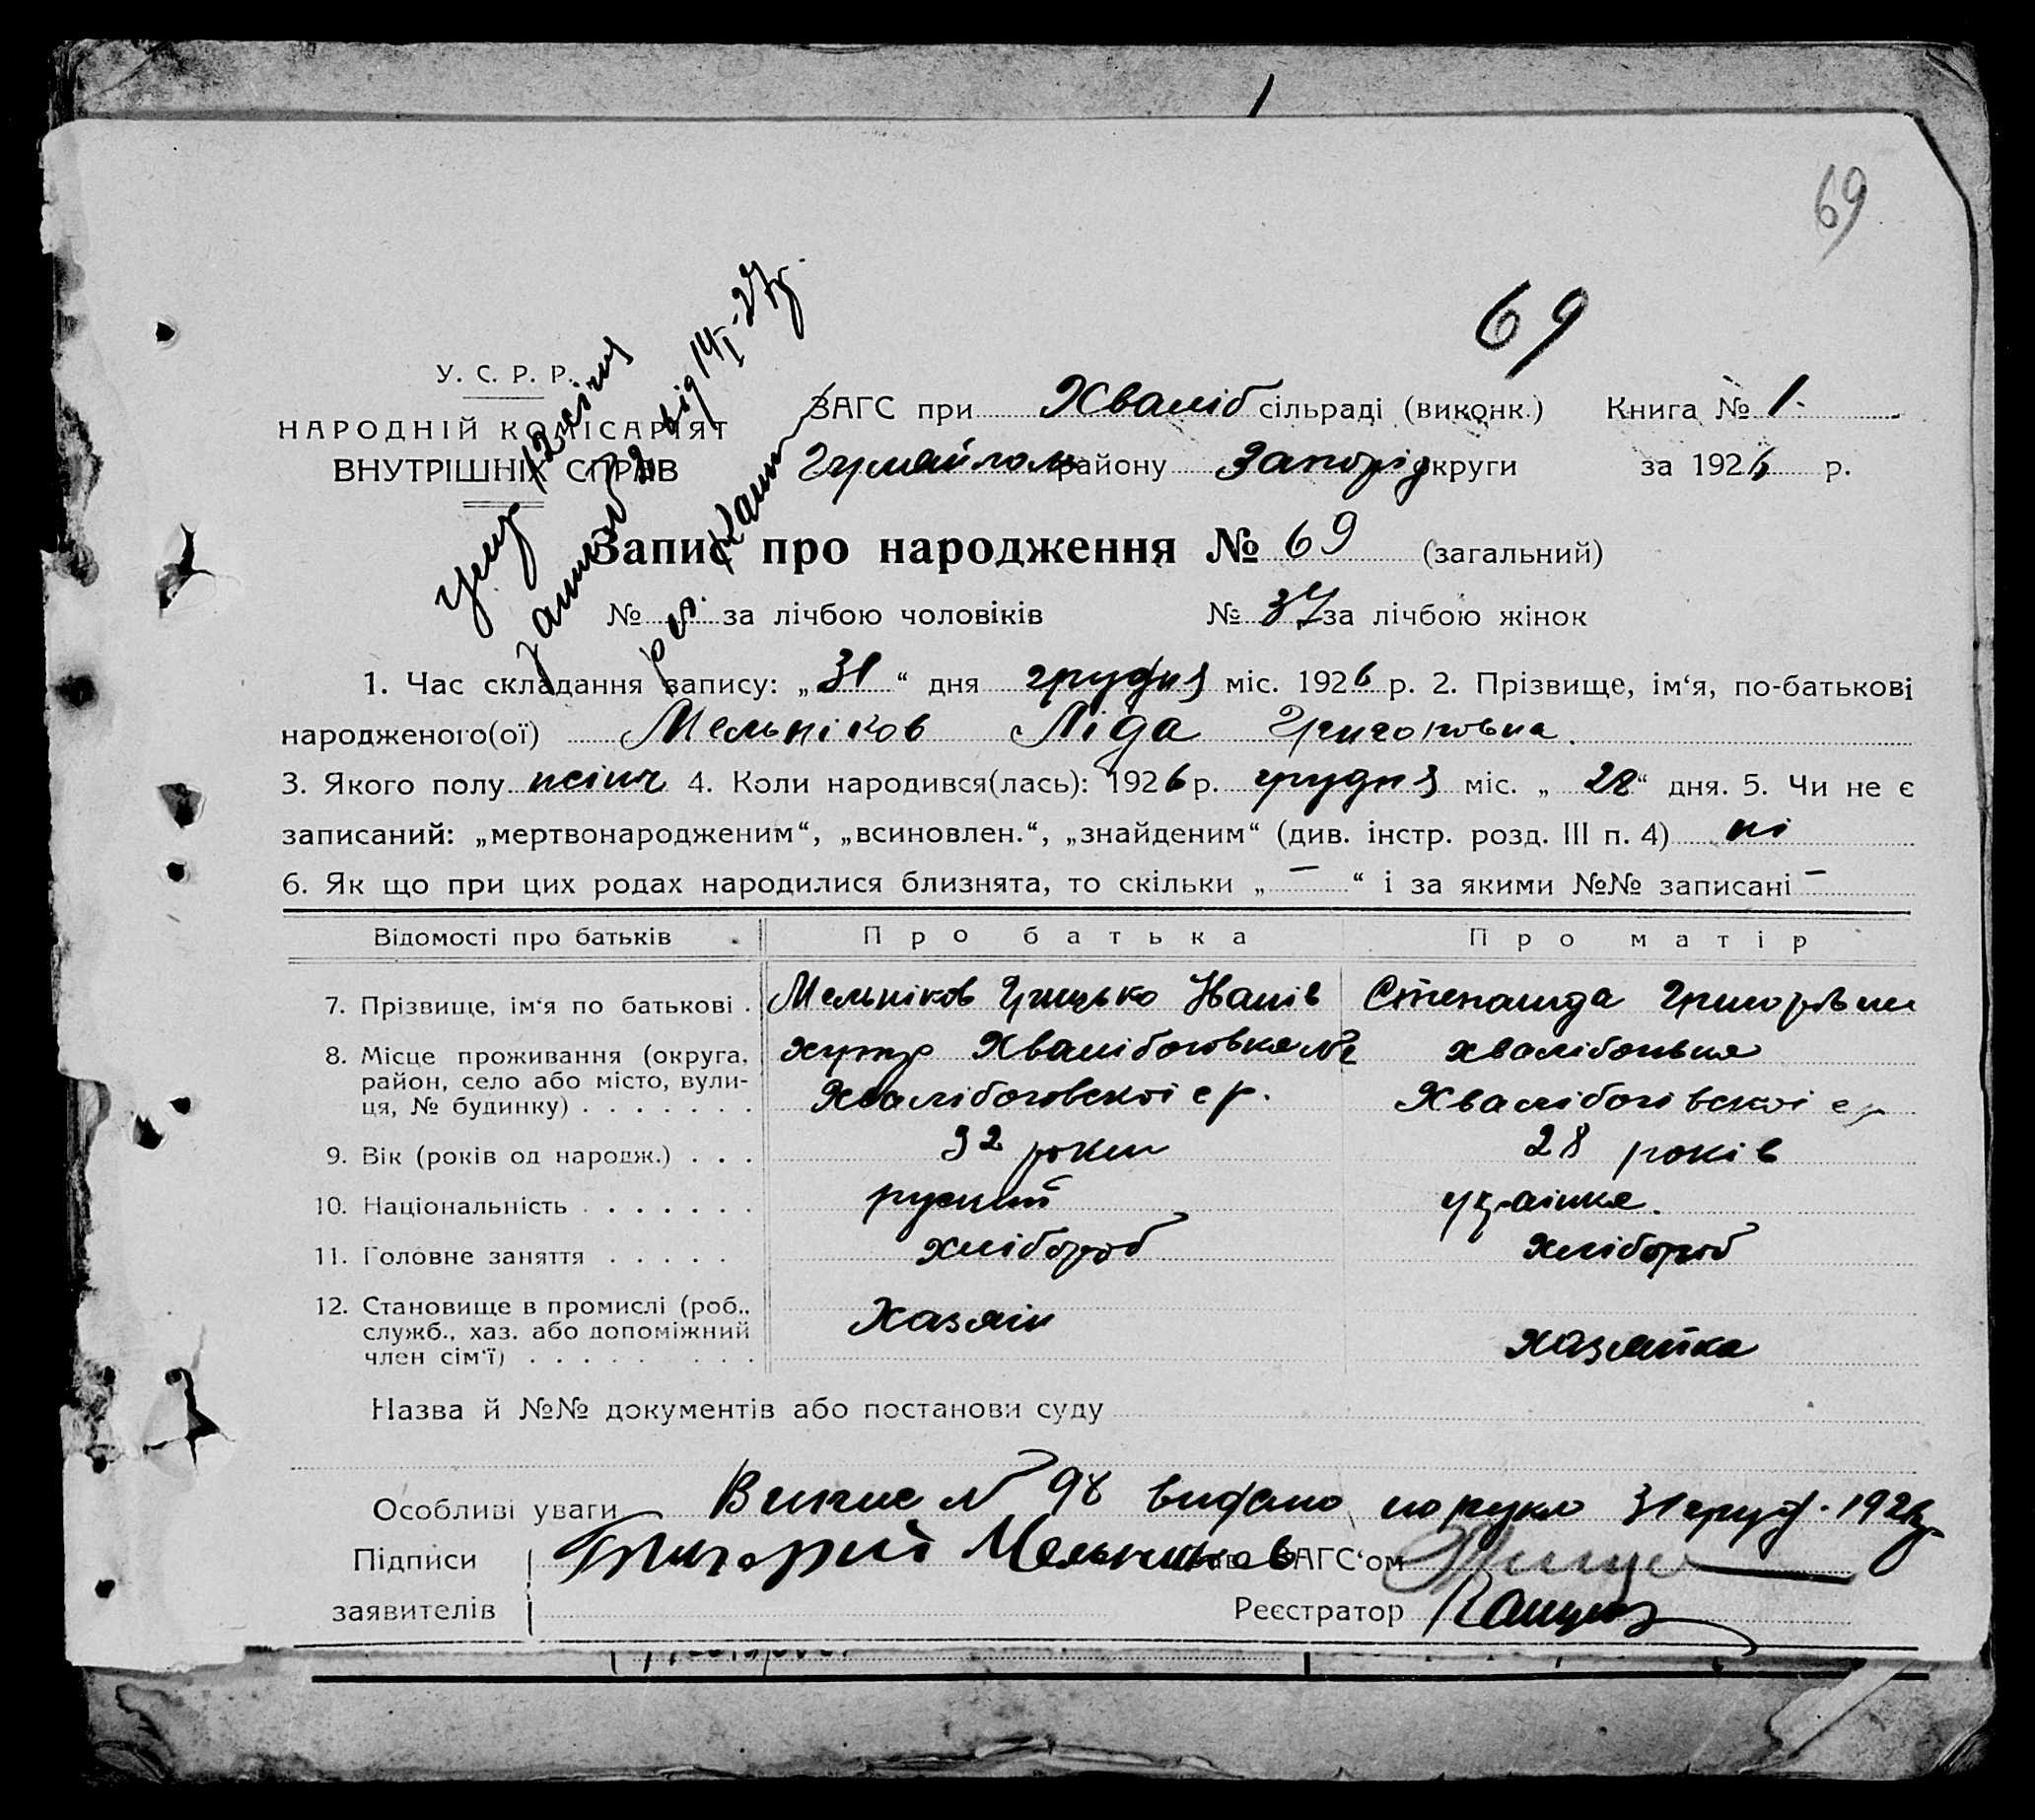 69
69
У. С. Р. Р.
НАРОДНІЙ КОМІСАРІЯТ
ВНУТРІШНІХ СПРАВ
ЗАГС при Хваліб сільраді (виконк.) Книга № 1.
району Запорід округи за 1926 р.
Запис про народження № 69 (загальний)
№ за лічбою чоловіків № 37 за лічбою жінок
1. Час складання запису: „31“ дня грудня міс. 1926 р. 2. Прізвище, ім‘я, по-батькові
народженого(ої) Мельніков Ліда Григоровна.
3. Якого полу жіноч 4. Коли народився(лась): 1926 р. грудня міс. „28“ дня. 5. Чи не є
записаний: „мертвонародженим“, „всиновлен.“, „знайденим“ (див. інстр. розд. III п. 4) ні
6. Як що при цих родах народилися близнята, то скільки „—“ і за якими №№ записані —
Відомості про батьків Про батька Про матір
7. Прізвище, ім‘я по батькові . Мельніков Грицько Іванів Степанида Григорівна
8. Місце проживання (округа, хутір Хвалібоговка №2 Хвалібогівка
район, село або місто, вули- Хвалібоговскої с р. Хвалібогівскої с р
ця, № будинку) . . . . . . .
9. Вік (років од народж.) . . . 32 роки 28 років
10. Національність . . . . . . . руский українка.
11. Головне заняття . . . . . хлібороб хлібороб
12. Становище в промислі (роб., Хазяїн хазяйка
служб., хаз. або допоміжний
член сім‘ї) . . . . . . . .
Назва й №№ документів або постанови суду
Особливі уваги Випис № 98 видано на руки 31 груд. 1926 р.
Підписи Григорий Мельников ЗАГС‘ом
заявителів Реєстратор